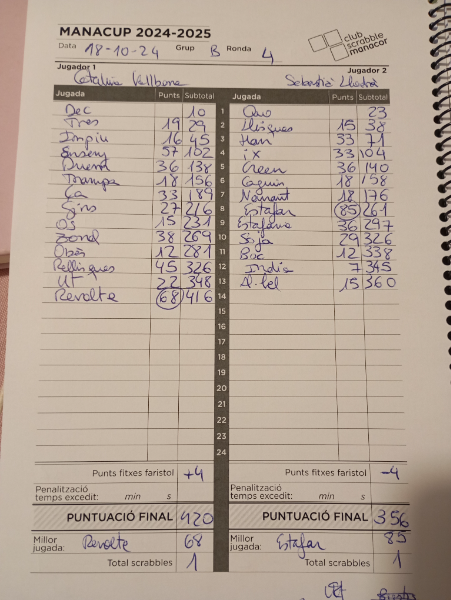 MANACUP 2024-2025
club scrabble manacor
Data 18-10-24 Grup B Ronda 4
Jugador 1 Jugador 2
Catalina Vallbona Sebastià
Jugada Punts Subtotal Jugada Punts Subtotal
Dec 10 1 Quo 23
Tres 19 29 2 Llisques 15 38
Impiu 16 45 3 Han 33 71
Enseny 57 102 4 ix 33 104
36 138 5 Creen 36 140
Trampa 18 156 6 18 158
Ça 33 189 7 18 176
Giro 27 216 8 Estafar 85 261
Os 15 231 9 Estafava 36 297
Zond 38 269 10 Soja 29 326
12 281 11 Boc 12 338
Rellisques 45 326 12 India 7 345
Ut 22 348 13 15 360
Revolte 68 416 14
15
16
17
18
19
20
21
22
23
24
Punts fitxes faristol +4 Punts fitxes faristol -4
Penalització temps excedit: min s Penalització temps excedit: min s
PUNTUACIÓ FINAL 420 PUNTUACIÓ FINAL 356
Millor jugada: Revolte 68 Millor jugada: Estafar 85
Total scrabbles 1 Total scrabbles 1